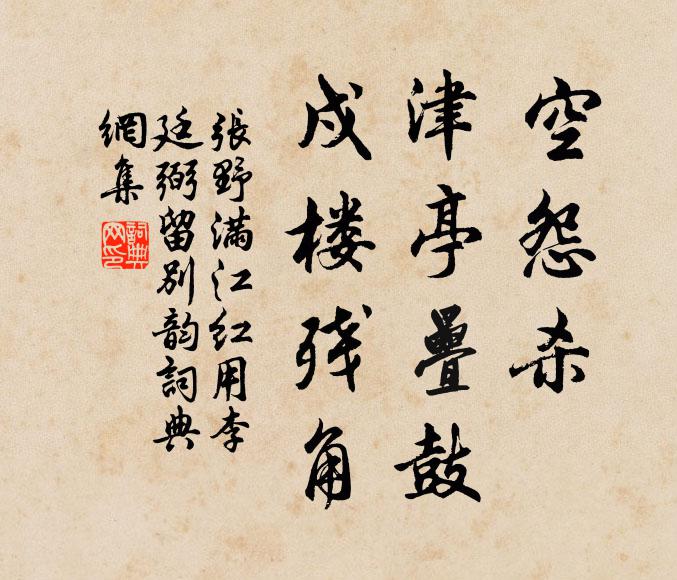 空怨杀
津亭叠鼓
戍楼残角
張野满江红用李
廷弼留别韵詞典
網集
詞典
网印